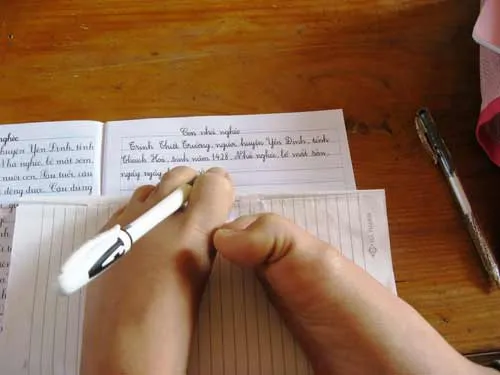 nghèo
huyện Yên Định, tỉnh
Nhà nghèo, bố mất sớm,
nuôi con. Sáu tuổi, cậu
Cậu dùng
Con nhà nghèo
Trịnh Thiết Trường, người huyện Yên Định, tỉnh
Thanh Hoá, sinh năm 1428. Nhà nghèo, bố mất sớm,
ngày ngày